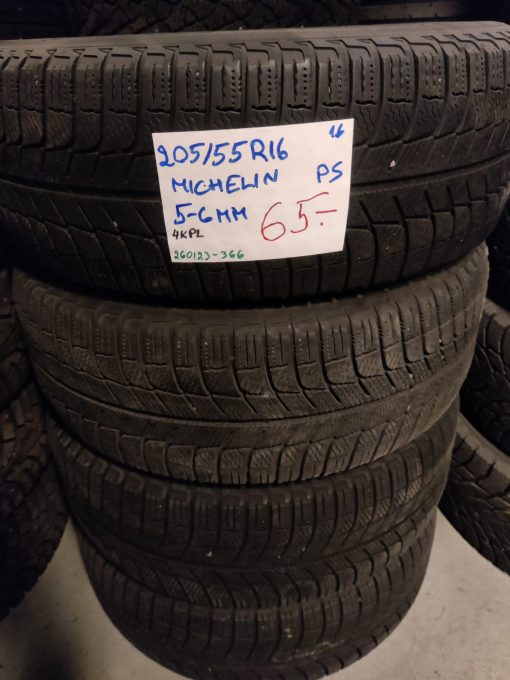 205/55R16 16
MICHELIN PS
5-6MM 65.-
4KPL
260123-366